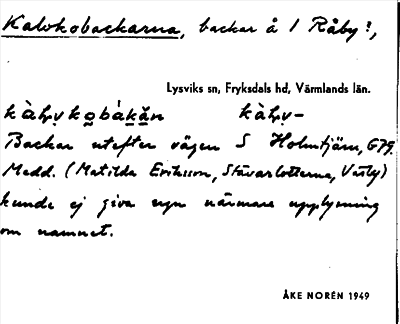 Kalvkobackarna, backar å 1 Råby?,
Lysviks sn, Fryksdals hd, Värmlands län.
Backar utefter vägen S Holmtjärn, G79.
Medd. (Matilda Eriksson, Stavarlotterna, Västby)
kunde ej giva ngn närmare upplysning
om namnet.
ÅKE NORÉN 1949